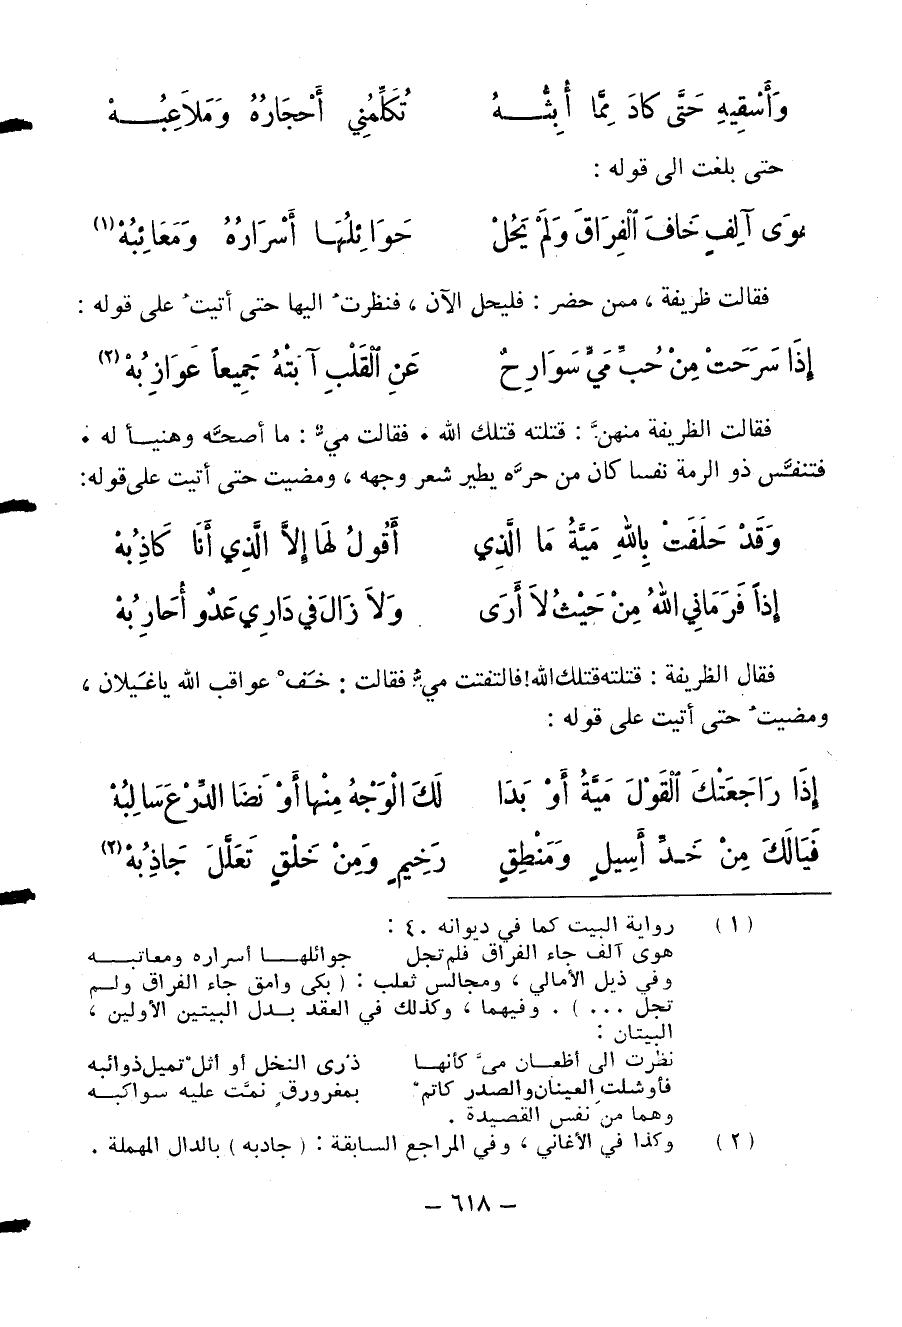 وَأَسْقِيهِ حَتَّى كادَ مِمَّا أُبِثُّــــهُ تُكَلِّمُنِي أَحْجَارُهُ وَمَلاَعِبُــــهْ
حتى بلغت الى قوله :
هوَى آلِفٍ خَافَ ٱلْفِرَاقَ وَلَمْ يَحُلْ حَوَائِلُهَا أَسْرَارُهُ وَمَعَائِبُهْ (١)
فقالت ظريفة ، ممن حضر : فليحل الآن ، فنظرتُ اليها حتى أتيتُ على قوله :
إِذَا سَرَحَتْ مِنْ حُبِّ مَيٍّ سَوَارِحٌ عَنِ ٱلْقَلْبِ آبَتْهُ جَمِيعاً عَوَازِبُهْ (٢)
فقالت الظريفة منهنَّ : قتلته قتلك الله . فقالت ميٌّ : ما أصحَّه وهنيــأ له .
فتنفَّس ذو الرمة نفسا كان من حرَّه يطير شعر وجهه ، ومضيت حتى أتيت على قوله:
وَقَدْ حَلَفَتْ بِاللهِ مَيَّةُ مَا الَّذِي أَقُولُ لَهَا إِلاَّ الَّذِي أَنَا كَاذِبُهْ
إِذاً فَرَمَانِي اللهُ مِنْ حَيْثُ لاَ أَرَى وَلاَ زَالَ فِي دَارِي عَدُو أُحَارِبُهْ
فقال الظريفة : قتلته قتلك الله! فالتفتت ميٌّ فقالت : خَفْ عواقب الله ياغَيلان ،
ومضيتُ حتى أتيت على قوله :
إِذَا رَاجَعَتْكَ ٱلْقَوْلَ مَيَّةُ أَوْ بَدَا لَكَ الْوَجْهُ مِنْها أَوْ نَضَا الدِّرْعَ سَالِبُهْ
فَيَالَكَ مِنْ خَــدٍّ أَسِيلٍ وَمَنْطِقٍ رَخِيمٍ وَمِنْ خَلْقٍ تَعَلَّلَ جَاذِبُهْ (٢)
( ١ ) رواية البيت كما في ديوانه ٤٠ :
هوى آلف جاء الفراق فلم تجل جوائلهــــا أسراره ومعاتبــــه
وفي ذيل الأمالي ، ومجالس ثعلب : ( بكى وامق جاء الفراق ولــم
تجل ... ) . وفيهما ، وكذلك في العقد بــدل البيتين الأولين ،
البيتان :
نظرت الى أظعــان ميَّ كأنهــا ذرى النخل أو أثل تميل ذوائبه
فأوشلت العينان والصدر كاتمْ بمغرورقٍ نمَّت عليه سواكبــه
وهما من نفس القصيدة .
( ٢ ) وكذا في الأغاني ، وفي المراجع السابقة : ( جادبه ) بالدال المهملة .
– ٦١٨ –